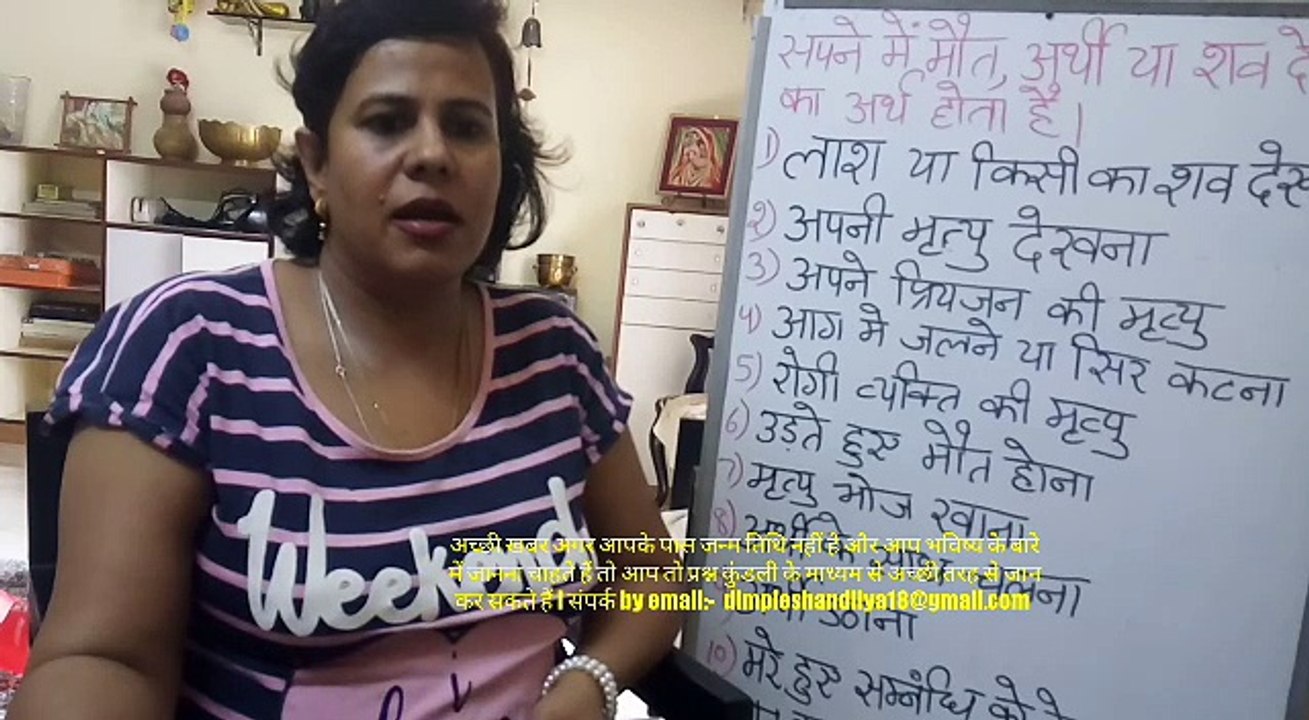 सपने में मौत, अर्थी या शव
का अर्थ होता है।
1) लाश या किसी का शव
२) अपनी मृत्यु देखना
3) अपने प्रियजन की मृत्यु
४) आग मे जलने या सिर कटना
5) रोगी व्यक्ति की मृत्यु
6) उड़ते हुए मौत होना
7) मृत्यु भोज खाना
8)
10) मरे हुए सम्बंधि को
Weekend
अच्छी खबर अगर आपके पास जन्म तिथि नहीं है और आप भविष्य के बारे
में जानना चाहते हैं तो आप तो प्रश्न कुंडली के माध्यम से अच्छी तरह से जान
कर सकते हैं । संपर्क by email:- dimpleshandilya18@gmail.com